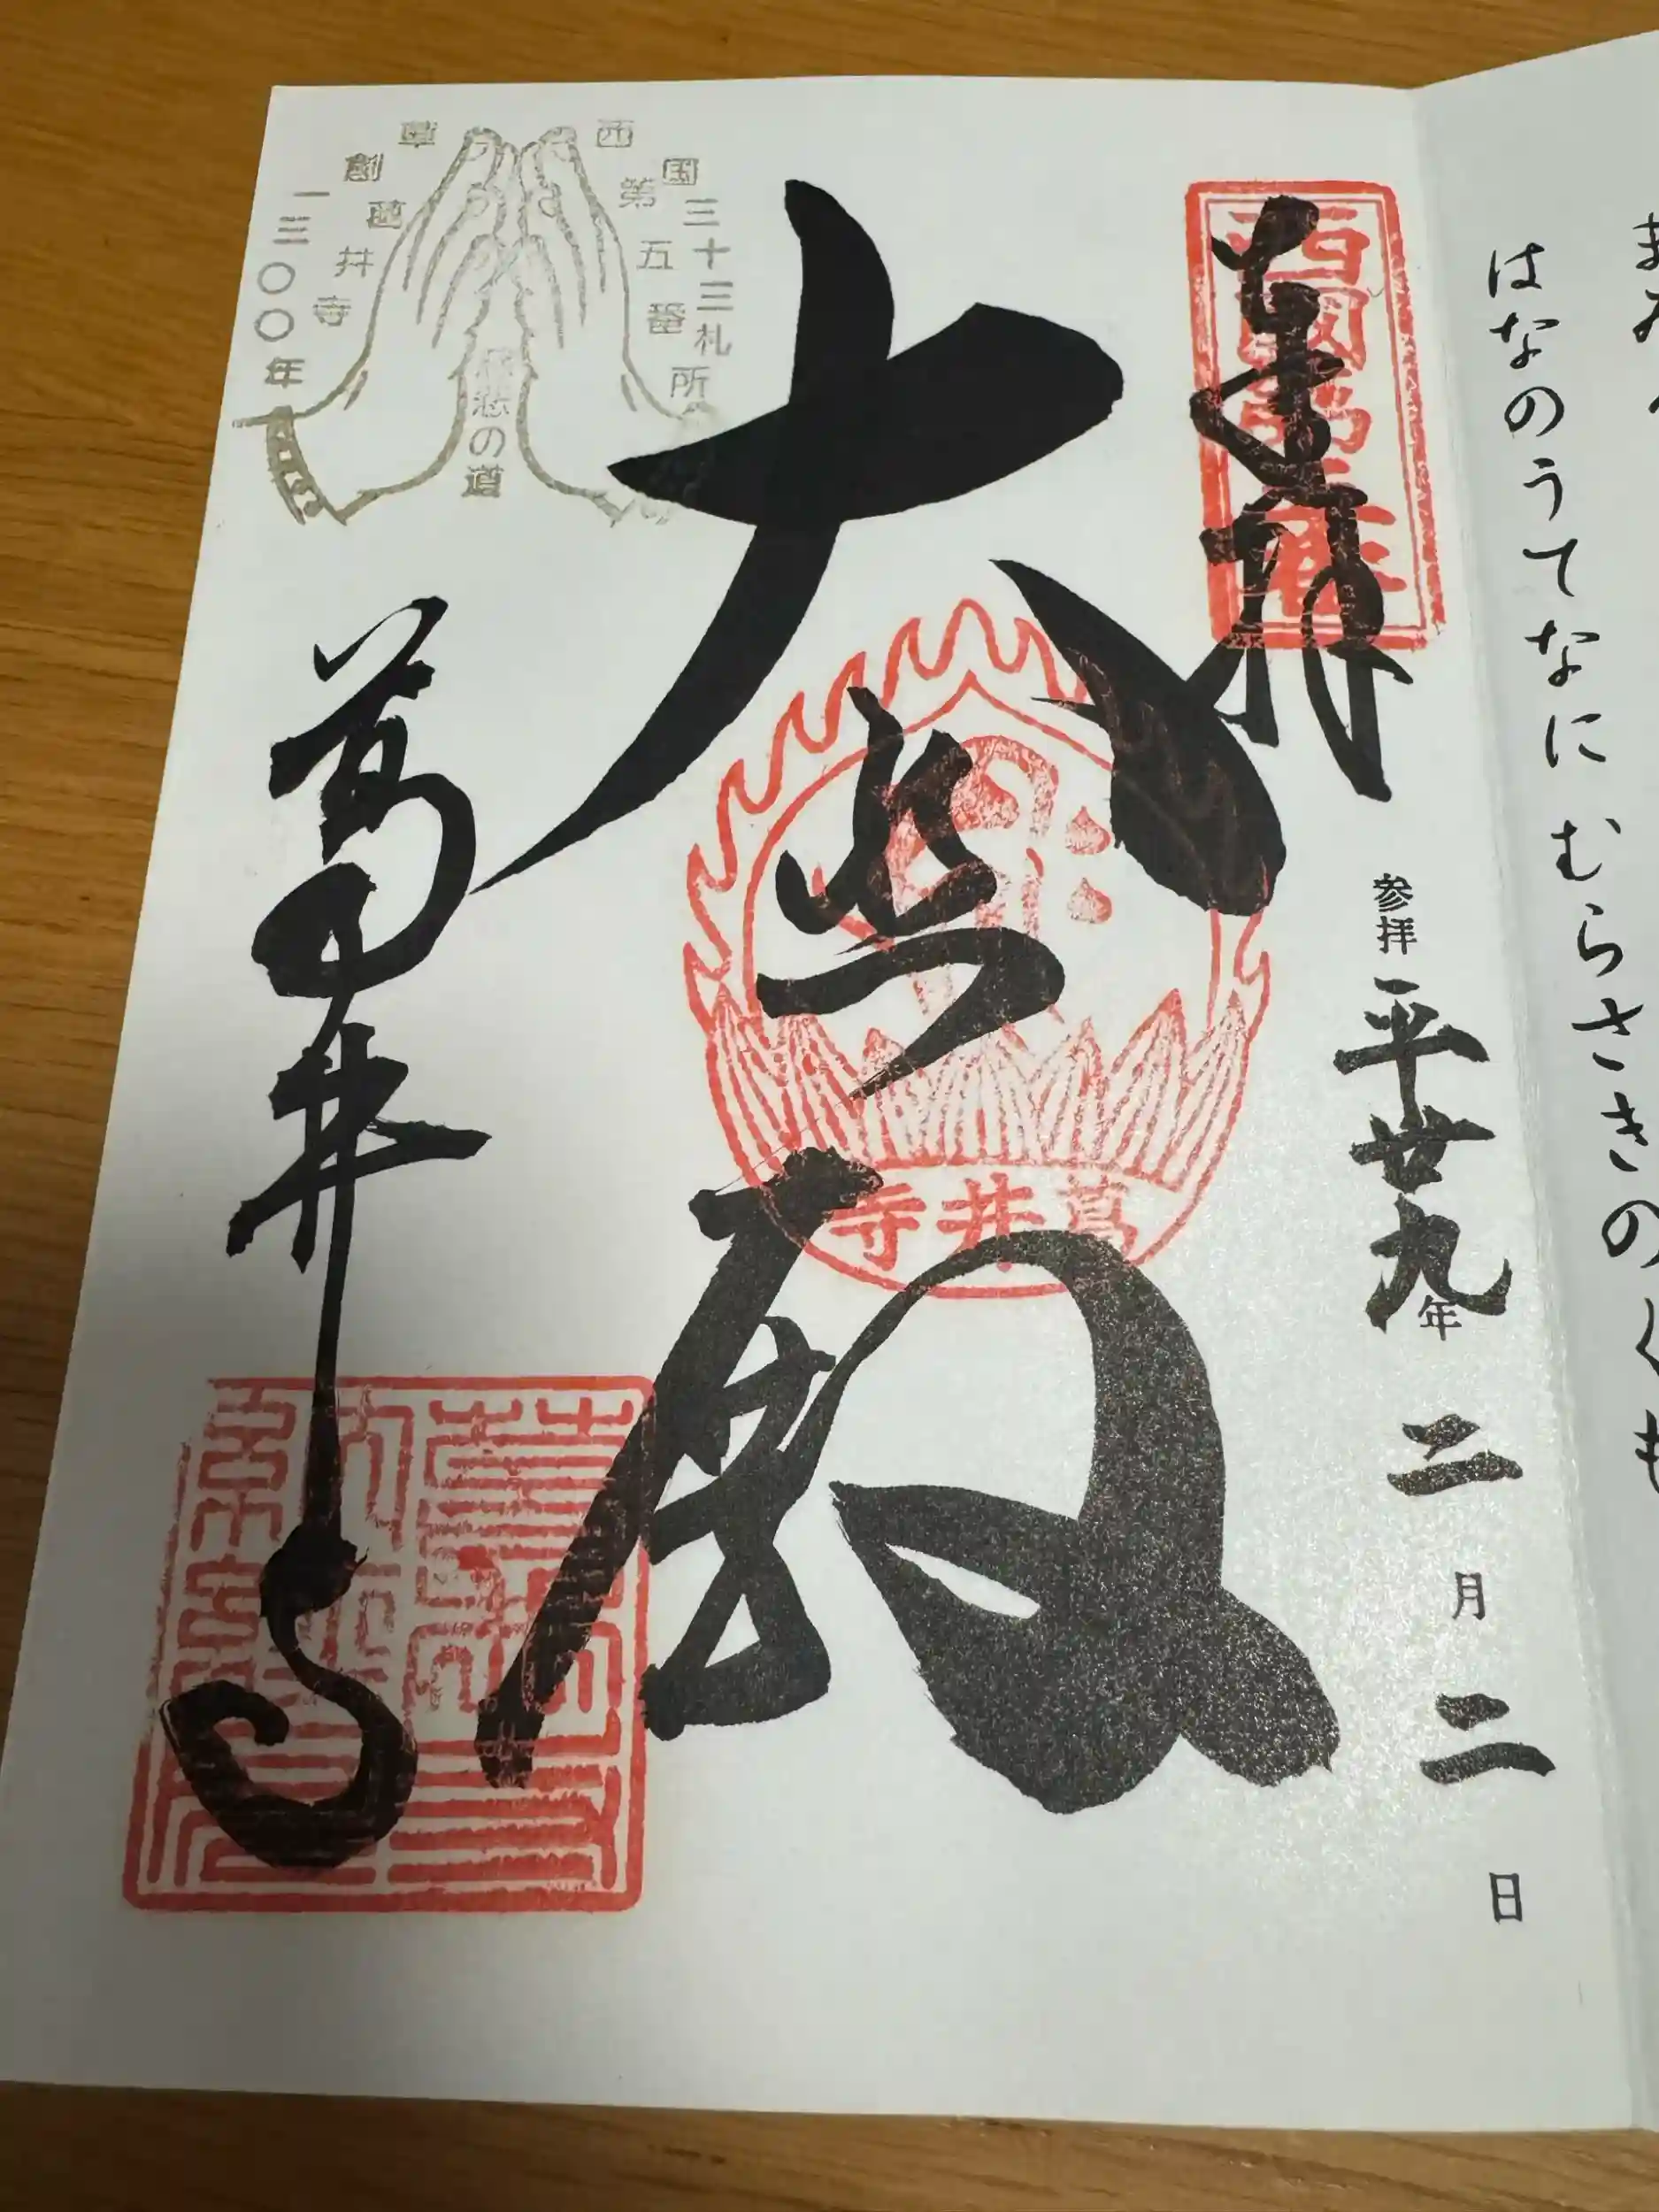 はなのうてなに むらさきのくも
奉拝
西國第五番
参拝 平廿九年 二月 二日
大悲殿
葛井寺
葛井寺
西国三十三札所
第五番
葛井寺
草創一三〇〇年
慈悲の道